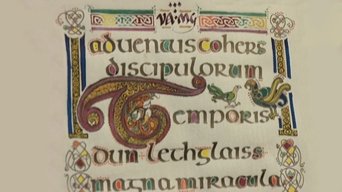 VA·MG
advencuscohers
discipulorum
Temporis
dum lethglaiss
magna miracula